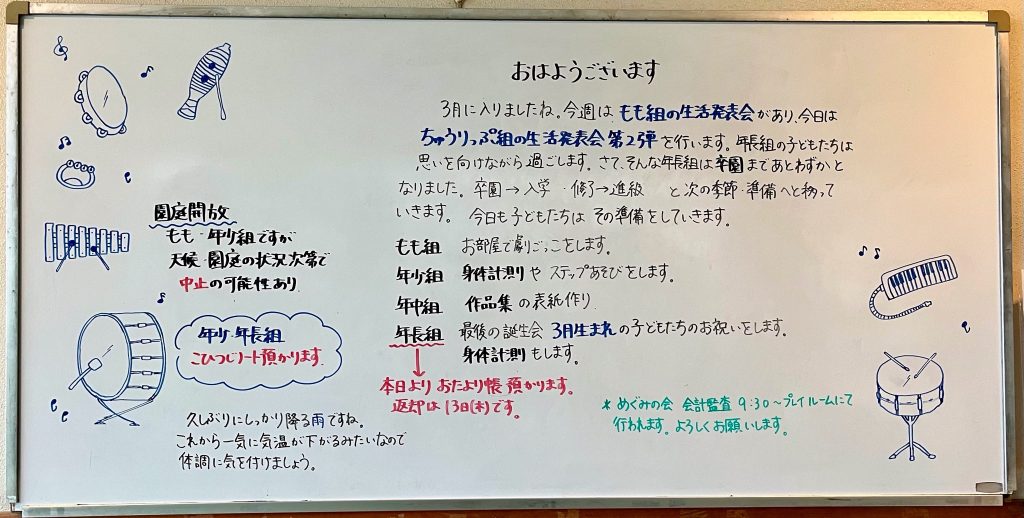 おはようございます
3月に入りましたね。今週は もも組の生活発表会があり、今日は
ちゅうりっぷ組の生活発表会 第2弾を行います。年長組の子どもたちは
思いを向けながら過ごします。さて、そんな年長組は卒園まであとわずかと
なりました。卒園→入学・修了→進級 と次の季節・準備へと移って
いきます。今日も子どもたちは その準備をしていきます。
もも組 お部屋で劇ごっこをします。
年少組 身体計測や ステップあそびをします。
年中組 作品集の表紙作り
年長組 最後の誕生会 3月生まれの子どもたちのお祝いをします。
身体計測もします。
本日より おたより帳 預かります。
返却は 13日(木)です。
園庭開放
もも・年少組ですが
天候・園庭の状況次第で
中止の可能性あり
年少・年長組
こひつじノート預かります。
久しぶりにしっかり降る雨ですね。
これから一気に気温が下がるみたいなので
体調に気を付けましょう。
* めぐみの会 会計監査 9:30~プレイルームにて
行われます。よろしくお願いします。